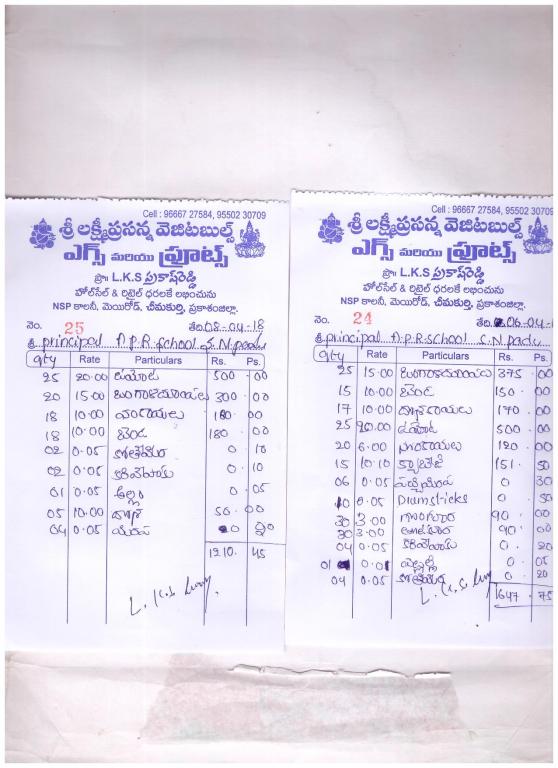 Cell : 96667 27584, 95502 30709
శ్రీ లక్ష్మీప్రసన్న వెజిటబుల్స్
ఎగ్స్ మరియు ఫ్రూట్స్
ప్రొ॥ L.K.S ప్రకాష్‌రెడ్డి
హోల్‌సేల్ & రిటైల్ ధరలకే లభించును
NSP కాలనీ, మెయిన్‌రోడ్, చీమకుర్తి, ప్రకాశంజిల్లా.
నెం. 25 తేది. 08-04-18
శ్రీ principal A.P.R. School S.N. Padu
Qty Rate Particulars Rs. Ps.
25 20.00 టమోట 500 00
20 15.00 వంగాకాయలు 300 00
18 10.00 180 00
18 10.00 బెండ 180 00
02 0.05 కొత్తిమీర 0 10
02 0.05 కరివేపాకు 0 10
01 0.05 అల్లం 0 05
05 10.00 దోస 50 00
04 0.05 0 20
1210. 45
L. K.S.
Cell : 96667 27584, 95502 30709
శ్రీ లక్ష్మీప్రసన్న వెజిటబుల్స్
ఎగ్స్ మరియు ఫ్రూట్స్
ప్రొ॥ L.K.S ప్రకాష్‌రెడ్డి
హోల్‌సేల్ & రిటైల్ ధరలకే లభించును
NSP కాలనీ, మెయిన్‌రోడ్, చీమకుర్తి, ప్రకాశంజిల్లా.
నెం. 24 తేది. 06-04-18
శ్రీ principal A.P.R. School S.N. Padu
Qty Rate Particulars Rs. Ps.
25 15.00 వంగాకాయలు 375 00
15 10.00 బెండ 150 00
17 10.00 దోసకాయలు 170 00
25 20.00 టమోట 500 00
20 6.00 120 00
15 10.10 క్యాబేజి 151 50
06 0.05 పచ్చిమిర్చి 0 30
10 0.05 Drumsticks 0 50
30 3.00 గోంగూర 90 00
30 3.00 90 00
04 0.05 కరివేపాకు 0 20
01 0.05
04 0.05 కొత్తిమీర 0 20
L. K.S.
1647. 75